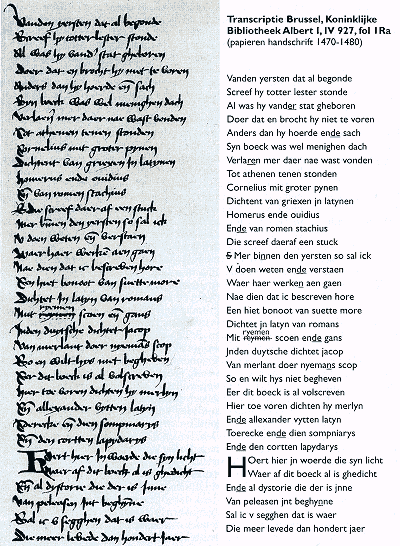 Vanden yersten dat al begonde
Screef hy totter lester stonde
Al was hy vand' stat gheboren
Doer dat en brocht hy niet te voren
Anders dan hy hoerde en̄ sach
Syn boeck was wel menighen dach
Verlar̄ mer daer nae wast vonden
Tot athenen tenen stonden
Cornelius mit groter pynen
Dichtent van griexen jn latynen
Homerus ende ouidius
En̄ van romen stachius
Die screef daeraf een stuck
Mer bin̄en den yersten so sal ick
V doen weten en̄ verstaen
Waer haer werkē aen gaen
Nae dien dat ic bescreven hore
Een hiet bonoot van suette more
Dichtet jn latyn van romans
ryemen
Mit reymen scoen en̄ gans
Jnden duytsche dichtet jacop
Van merlant doer nyemās scop
So en wilt hys niet begheven
Eer dit boeck is al volscreven
Hier toe voren dichten hy merlyn
En̄ allexander vytten latyn
Toerecke en̄ dien sompniarys
En̄ den cortten lapydarys
Hoert hier jn woerde die syn licht
Waer af dit boeck al is ghedicht
En̄ al dystorie die der is jnne
Van peleasen jnt beghyn̄e
Sal ic v segghen dat is waer
Die meer levede dan hondert jaer
Transcriptie Brussel, Koninklijke
Bibliotheek Albert I, IV 927, fol 1Ra
(papieren handschrift 1470-1480)
Vanden yersten dat al begonde
Screef hy totter lester stonde
Al was hy vander stat gheboren
Doer dat en brocht hy niet te voren
Anders dan hy hoerde ende sach
Syn boeck was wel menighen dach
Verlaren mer daer nae wast vonden
Tot athenen tenen stonden
Cornelius mit groter pynen
Dichtent van griexen jn latynen
Homerus ende ouidius
Ende van romen stachius
Die screef daeraf een stuck
S Mer binnen den yersten so sal ick
V doen weten ende verstaen
Waer haer werken aen gaen
Nae dien dat ic bescreven hore
Een hiet bonoot van suette more
Dichtet jn latyn van romans
ryemen
Mit reymen scoen ende gans
Jnden duytsche dichtet jacop
Van merlant doer nyemans scop
So en wilt hys niet begheven
Eer dit boeck is al volscreven
Hier toe voren dichten hy merlyn
Ende allexander vytten latyn
Toerecke ende dien sompniarys
Ende den cortten lapydarys
HOert hier jn woerde die syn licht
Waer af dit boeck al is ghedicht
Ende al dystorie die der is jnne
Van peleasen jnt beghynne
Sal ic v segghen dat is waer
Die meer levede dan hondert jaer